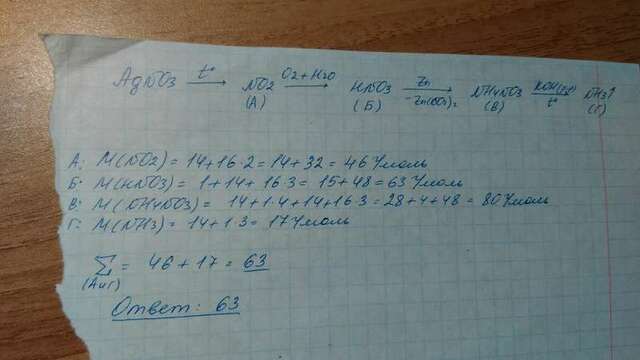 AgNO3 t° → NO2 O2+H2O → HNO3 Zn → NH4NO3 KOH t° → NH3↑
(А) (Б) -Zn(NO3)2 (В) (Г)
А: M(NO2) = 14+16·2 = 14+32 = 46 г/моль
Б: M(HNO3) = 1+14+16·3 = 15+48 = 63 г/моль
В: M(NH4NO3) = 14+1·4+14+16·3 = 28+4+48 = 80 г/моль
Г: M(NH3) = 14+1·3 = 17 г/моль
Σ = 46+17 = 63
(А и Г)
Ответ: 63